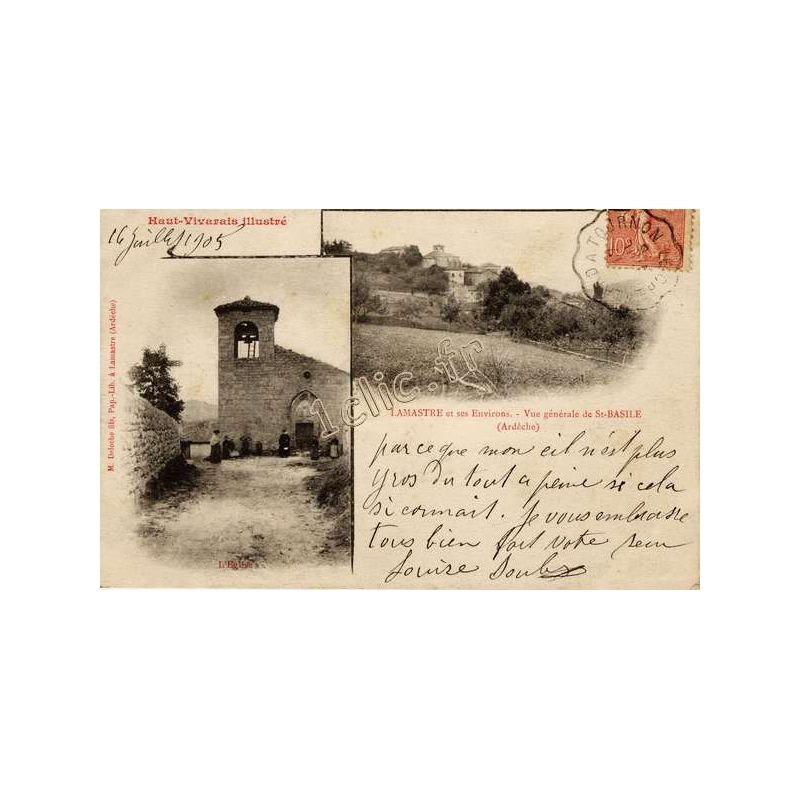 Haut-Vivarais illustré
16 Juillet 1905
10
A TOURNON
M. Deloche fils, Pap.-Lib. à Lamastre (Ardèche)
LAMASTRE et ses Environs. - Vue générale de St-BASILE
(Ardèche)
1clic.fr
parceque mon œil n'est plus
gros du tout a peine si cela
si connait. Je vous embrasse
tous bien fort votre
Louise
L'Eglise